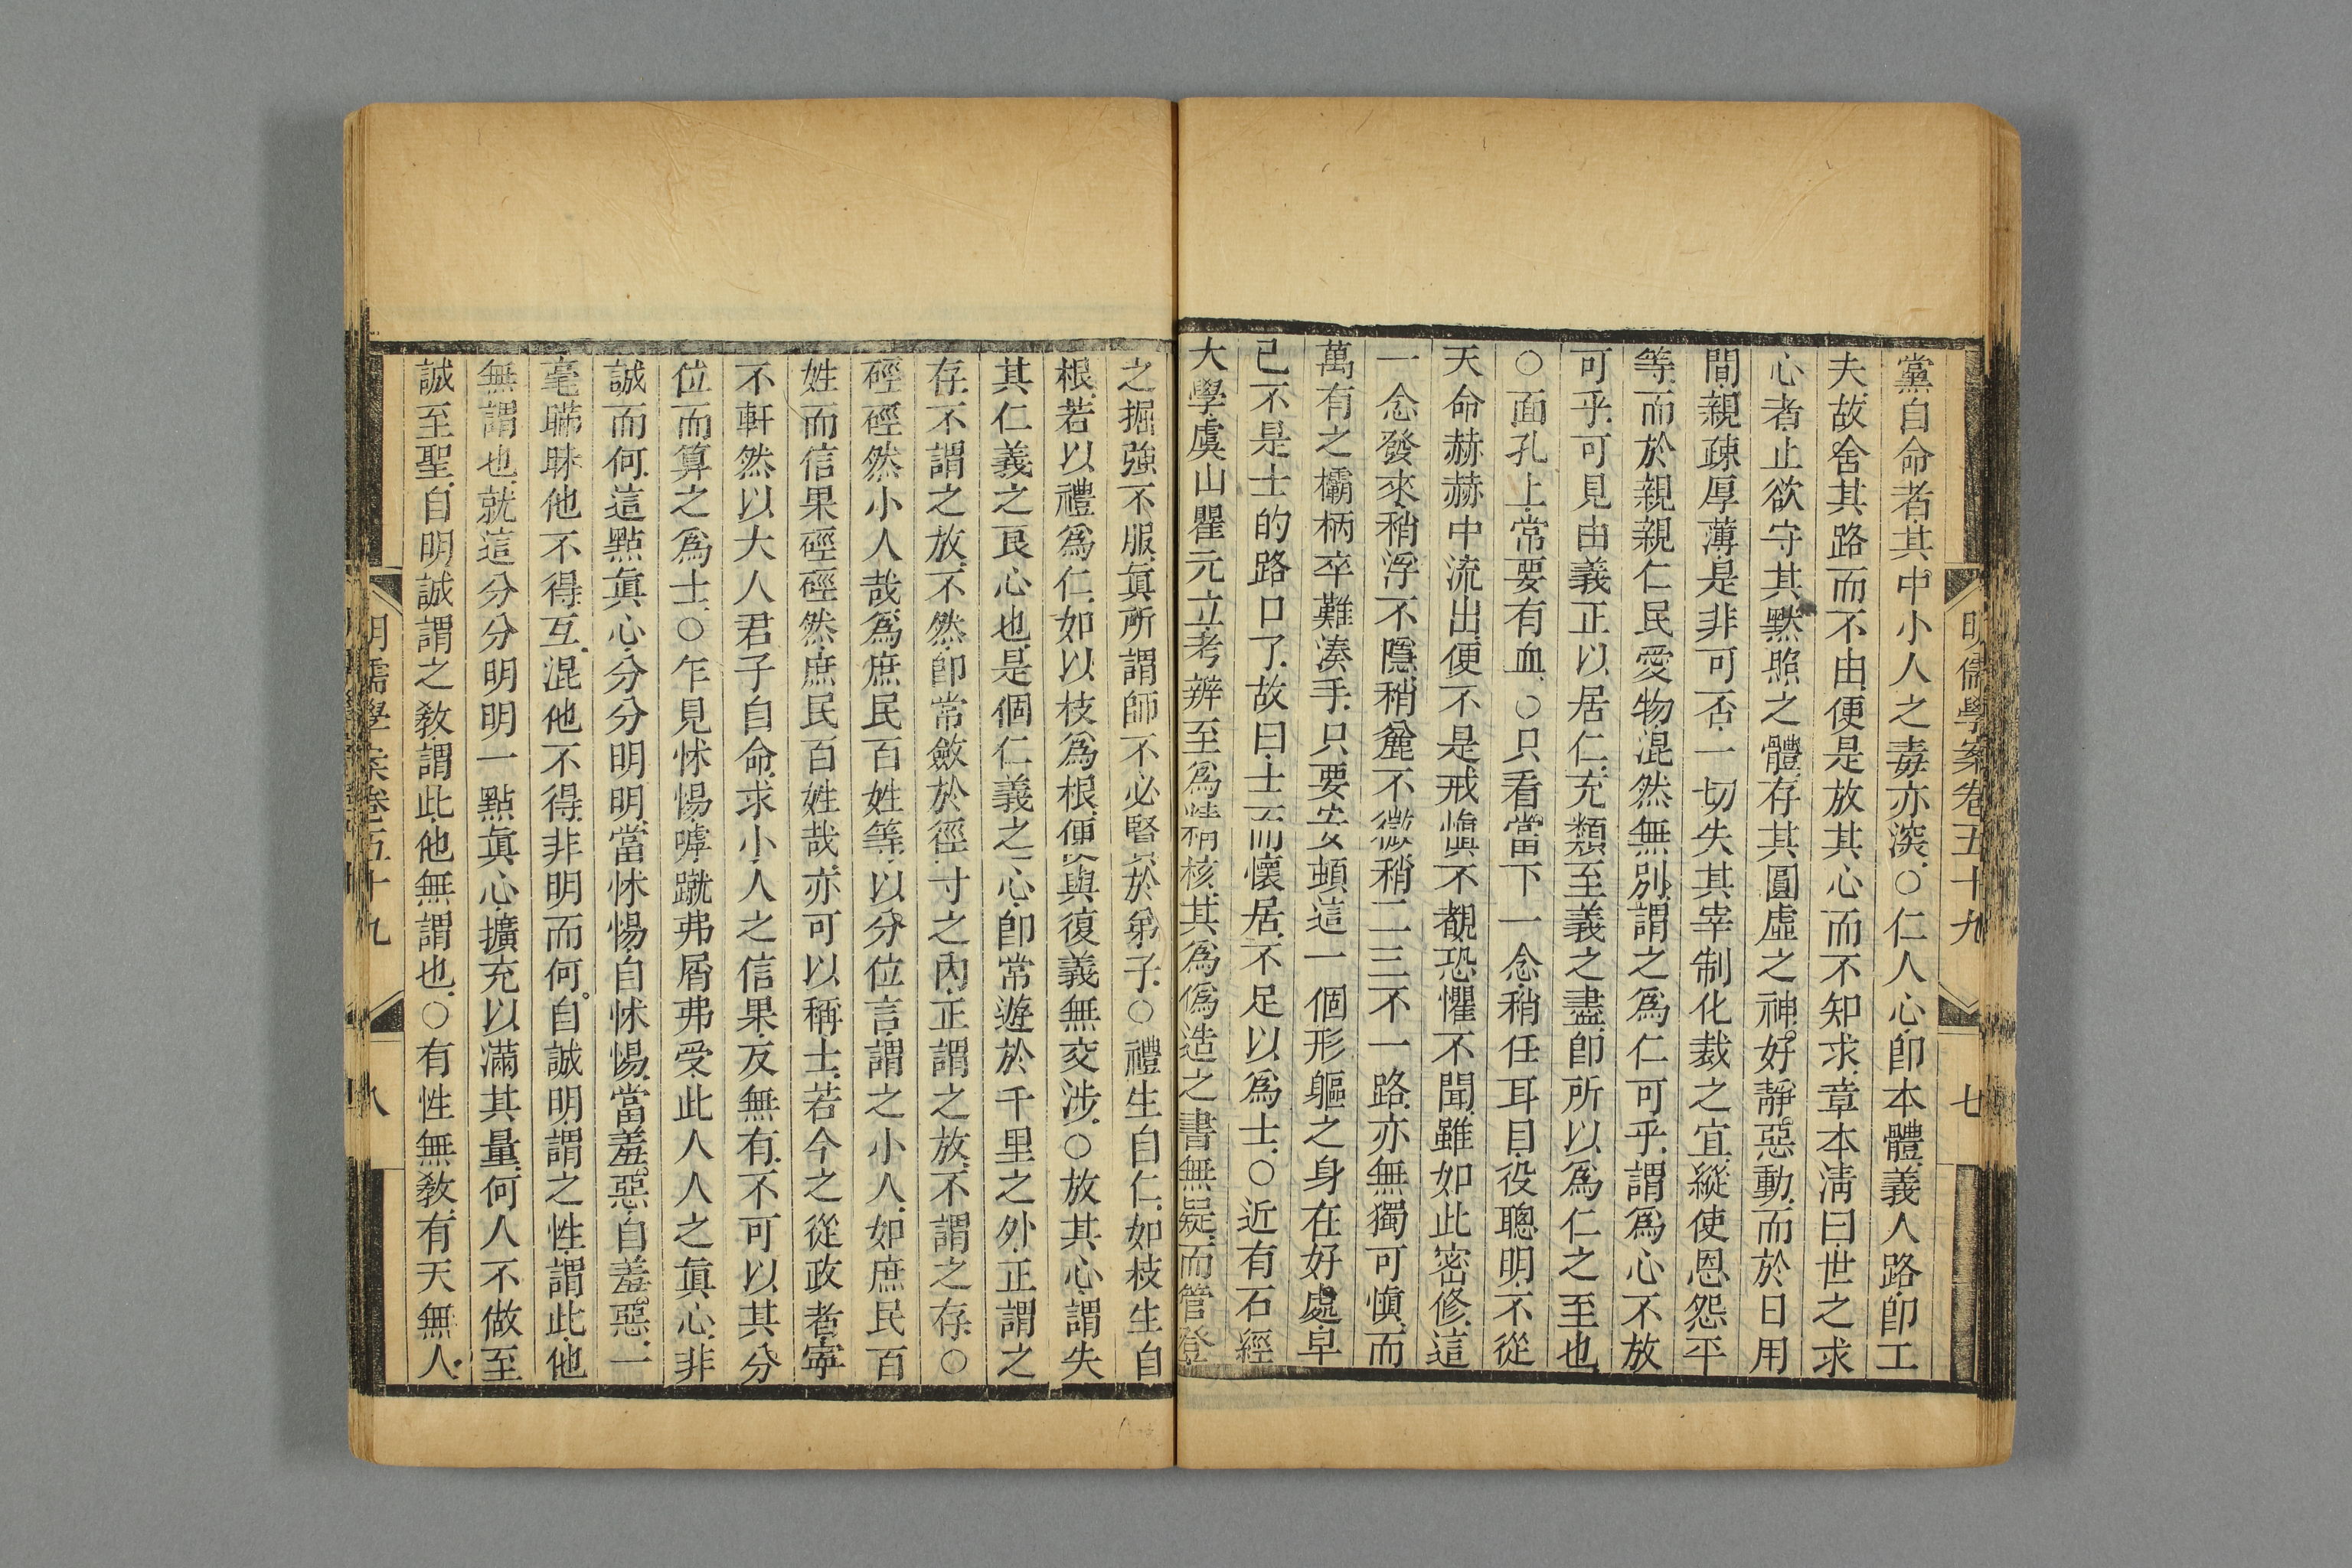 明儒學案卷五十九
七
黨自命者其中小人之毒亦深○仁人心卽本體義人路卽工
夫故舍其路而不由便是放其心而不知求章本淸曰世之求
心者止欲守其默照之體存其圓虛之神好靜惡動而於日用
間親疎厚薄是非可否一切失其宰制化裁之宜縱使恩怨平
等而於親親仁民愛物混然無別謂之爲仁可乎謂爲心不放
可乎可見由義正以居仁充類至義之盡卽所以爲仁之至也
○面孔上常要有血○只看當下一念稍任耳目役聰明不從
天命赫赫中流出便不是戒愼不覩恐懼不聞雖如此密修這
一念發來稍浮不隱稍麄不微稍二三不一路亦無獨可愼而
萬有之欛柄卒難湊手只要安頓這一個形軀之身在好處早
已不是士的路口了故曰士而懷居不足以爲士○近有石經
大學虞山瞿元立考辨至爲精核其爲僞造之書無疑而管登
之掘強不服眞所謂師不必賢於弟子○禮生自仁如枝生自
根若以禮爲仁如以枝爲根便與復義無交涉○放其心謂失
其仁義之良心也是個仁義之心卽常遊於千里之外正謂之
存不謂之放不然卽常斂於徑寸之內正謂之放不謂之存○
硜硜然小人哉爲庶民百姓等以分位言謂之小人如庶民百
姓而信果硜硜然庶民百姓哉亦可以稱士若今之從政者寧
不軒然以大人君子自命求小人之信果反無有不可以其分
位而算之爲士○乍見怵惕嘑蹴弗屑弗受此人人之眞心非
誠而何這點眞心分分明明當怵惕自怵惕當羞惡自羞惡一
毫曚昧他不得互混他不得非明而何自誠明謂之性謂此他
無謂也就這分分明明一點眞心擴充以滿其量何人不做至
誠至聖自明誠謂之敎謂此他無謂也○有性無敎有天無人
明儒學案卷五十九
八